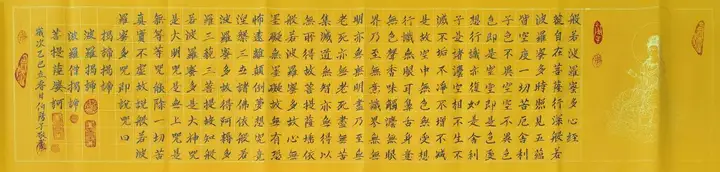 般若波羅蜜多心經
觀自在菩薩行深般若
波羅蜜多時照見五蘊
皆空度一切苦厄舍利
子色不異空空不異色
色即是空空即是色受
想行識亦復如是舍利
子是諸法空相不生不
滅不垢不淨不增不減
是故空中無色無受想
行識無眼耳鼻舌身意
無色聲香味觸法無眼
界乃至無意識界無無
明亦無無明盡乃至無
老死亦無老死盡無苦
集滅道無智亦無得以
無所得故菩提薩埵依
般若波羅蜜多故心無
罣礙無罣礙故無有恐
怖遠離顛倒夢想究竟
涅槃三世諸佛依般若
波羅蜜多故得阿耨多
羅三藐三菩提故知般
若波羅蜜多是大神咒
是大明咒是無上咒是
無等等咒能除一切苦
真實不虛故說般若波
羅蜜多咒即說咒曰
揭諦揭諦
波羅揭諦
波羅僧揭諦
菩提薩婆訶
歲次乙巳立春日